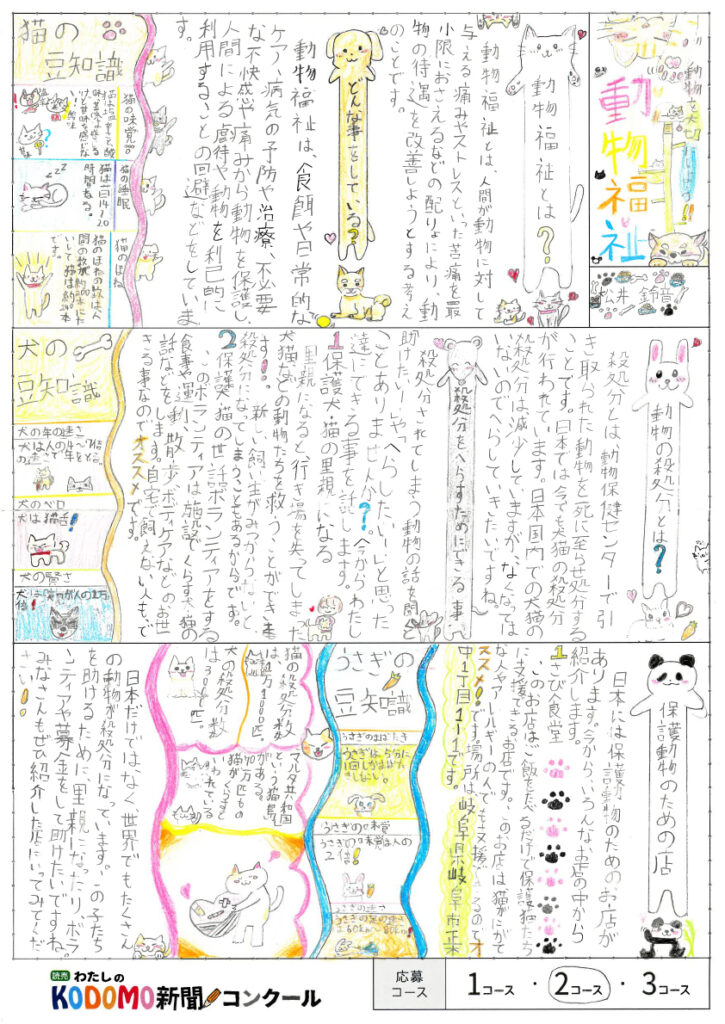 動物を大切に!!
動物福祉
松井 鈴音
動物福祉とは?
動物福祉とは、人間が動物に対して
与える痛みやストレスといった苦痛を最
小限におさえるなどの配りょにより、動
物の待遇を改善しようとする考え
のことです。
どんな事をしている?
動物福祉は、食餌や日常的な
ケア、病気の予防や治療、不必要
な不快感や痛みから動物を保護し
人間による虐待や動物を利己的に
利用することの回避などをしていま
す。
猫の
豆知識
猫の味覚
猫の睡眠
猫は1日14~20
時間ねる。
猫のほね
動物の殺処分とは?
殺処分とは、動物保健センターで引
き取られた動物を死に至らせ処分する
ことです。日本では今でも犬猫の殺処分
が行われています。日本国内での犬猫の
殺処分は減少していますが、なくなっては
いないのでへらしていきたいですね。
殺処分をへらすためにできる事
殺処分されてしまう動物の話を聞き
助けたい…や、へらしたい…と思った
ことありませんか?今からわたし
達にできる事を話します。
1 保護犬、猫の里親になる
里親になると行き場を失ってしまた
犬猫などの動物たちを救うことができま
す!新しい飼い主がみつからないと
殺処分になってしまうこともあるからです。
2 保護犬、猫の世話ボランティアをする
このボランティアは施設でくらす犬、猫の
食事や運動、散歩、ボディケアなどのお世
話などをします。自宅で飼えない人もで
きる事なのでオススメです。
犬の
豆知識
犬の年の速さ
犬のベロ
犬は猫舌!
犬の賢さ
保護動物のための店
日本には保護動物のためのお店が
あります。今から、いろんなお店の中から
紹介します。
1 さび食堂
このお店はご飯を食べるだけで保護猫たち
に支援できるお店です。このお店は猫がにがて
な人やアレルギーの人でも支援できるのでオ
ススメ!です。場所は岐阜県岐阜市薬
中1丁目1-1です。
うさぎの
豆知識
うさぎのまばたき
うさぎは、5分に
1回しかまばたき
しない。
うさぎの味覚
うさぎの味覚は人の
2倍!
うさぎの速さ
猫の殺処分数
犬の殺処分数
マルタ共和国
という猫島
がある。
日本だけではなく世界でもたくさん
の動物が殺処分になっています。この子たち
を助けるために里親になったり、ボラ
ンティアや募金をして助けたいですね。
みなさんもぜひ紹介した店にいってみてくだ
さい!
読売 わたしの
KODOMO新聞コンクール
応募
コース
1コース・2コース・3コース